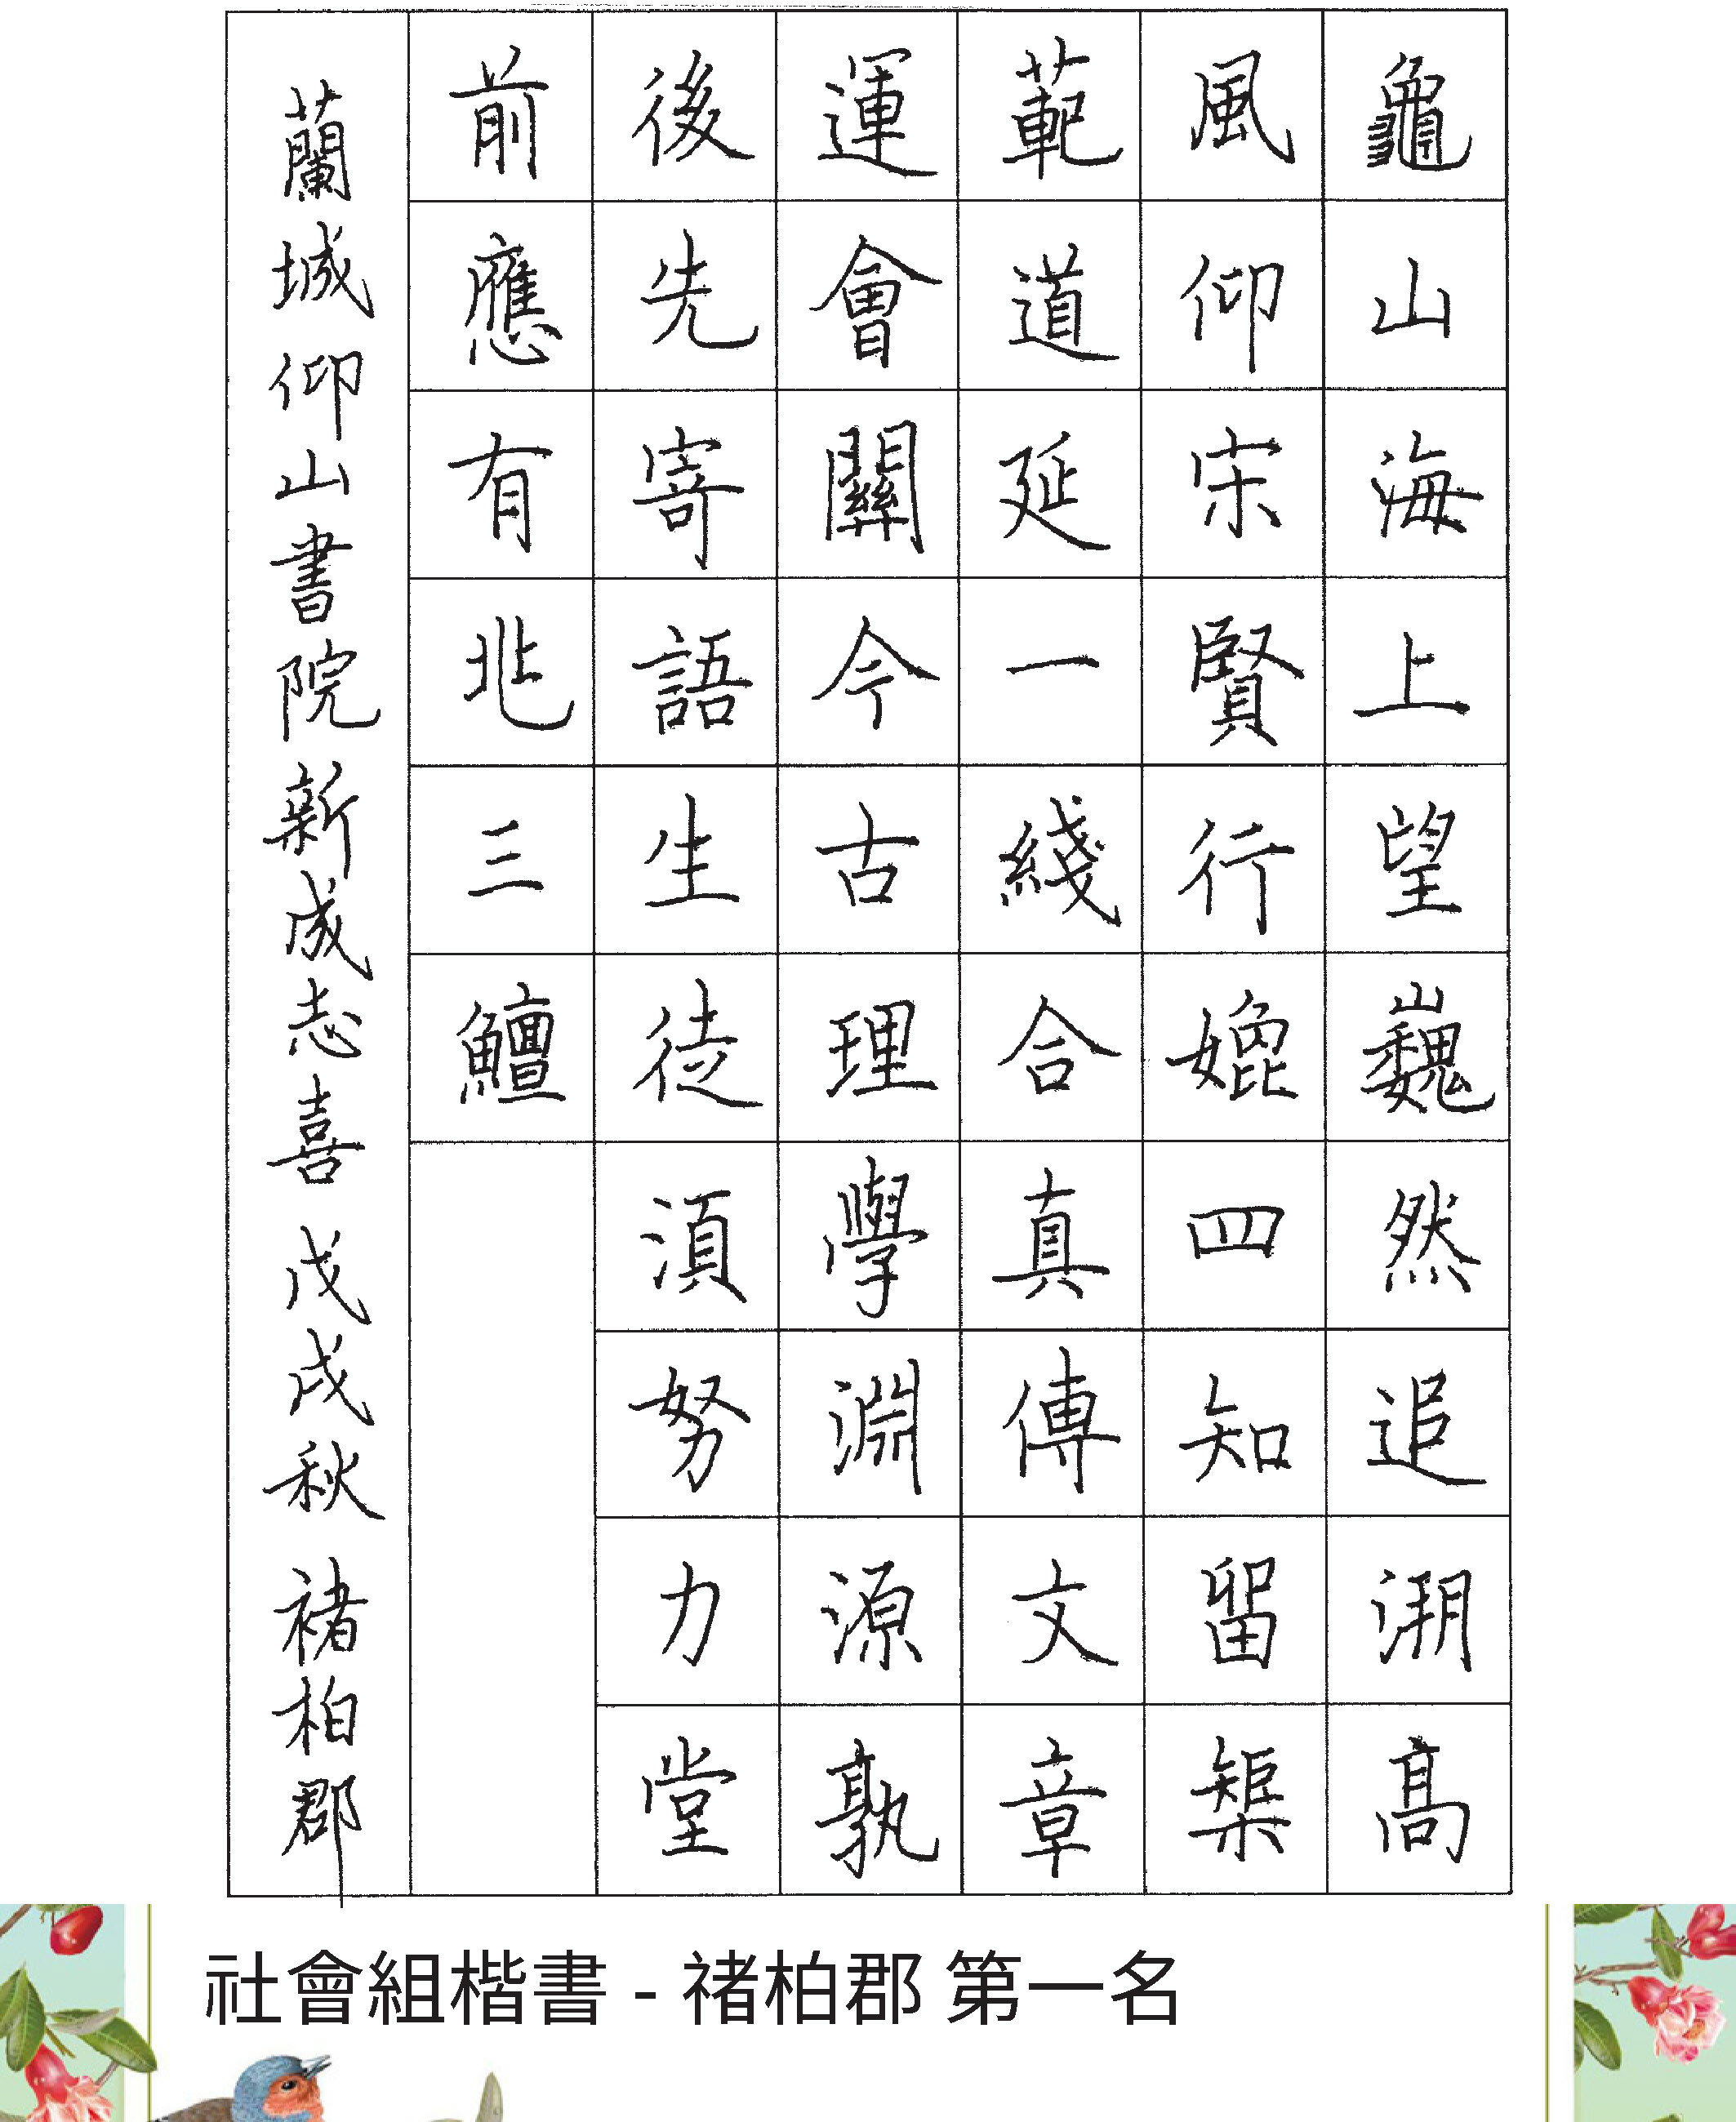 龜山海上望巍然追溯高
風仰宋賢行媲四知留榘
範道延一綫合真傳文章
運會關今古理學淵源孰
後先寄語生徒須努力堂
前應有兆三鱣
蘭城仰山書院新成志喜 戊戌秋 褚柏郡
社會組楷書 - 褚柏郡 第一名